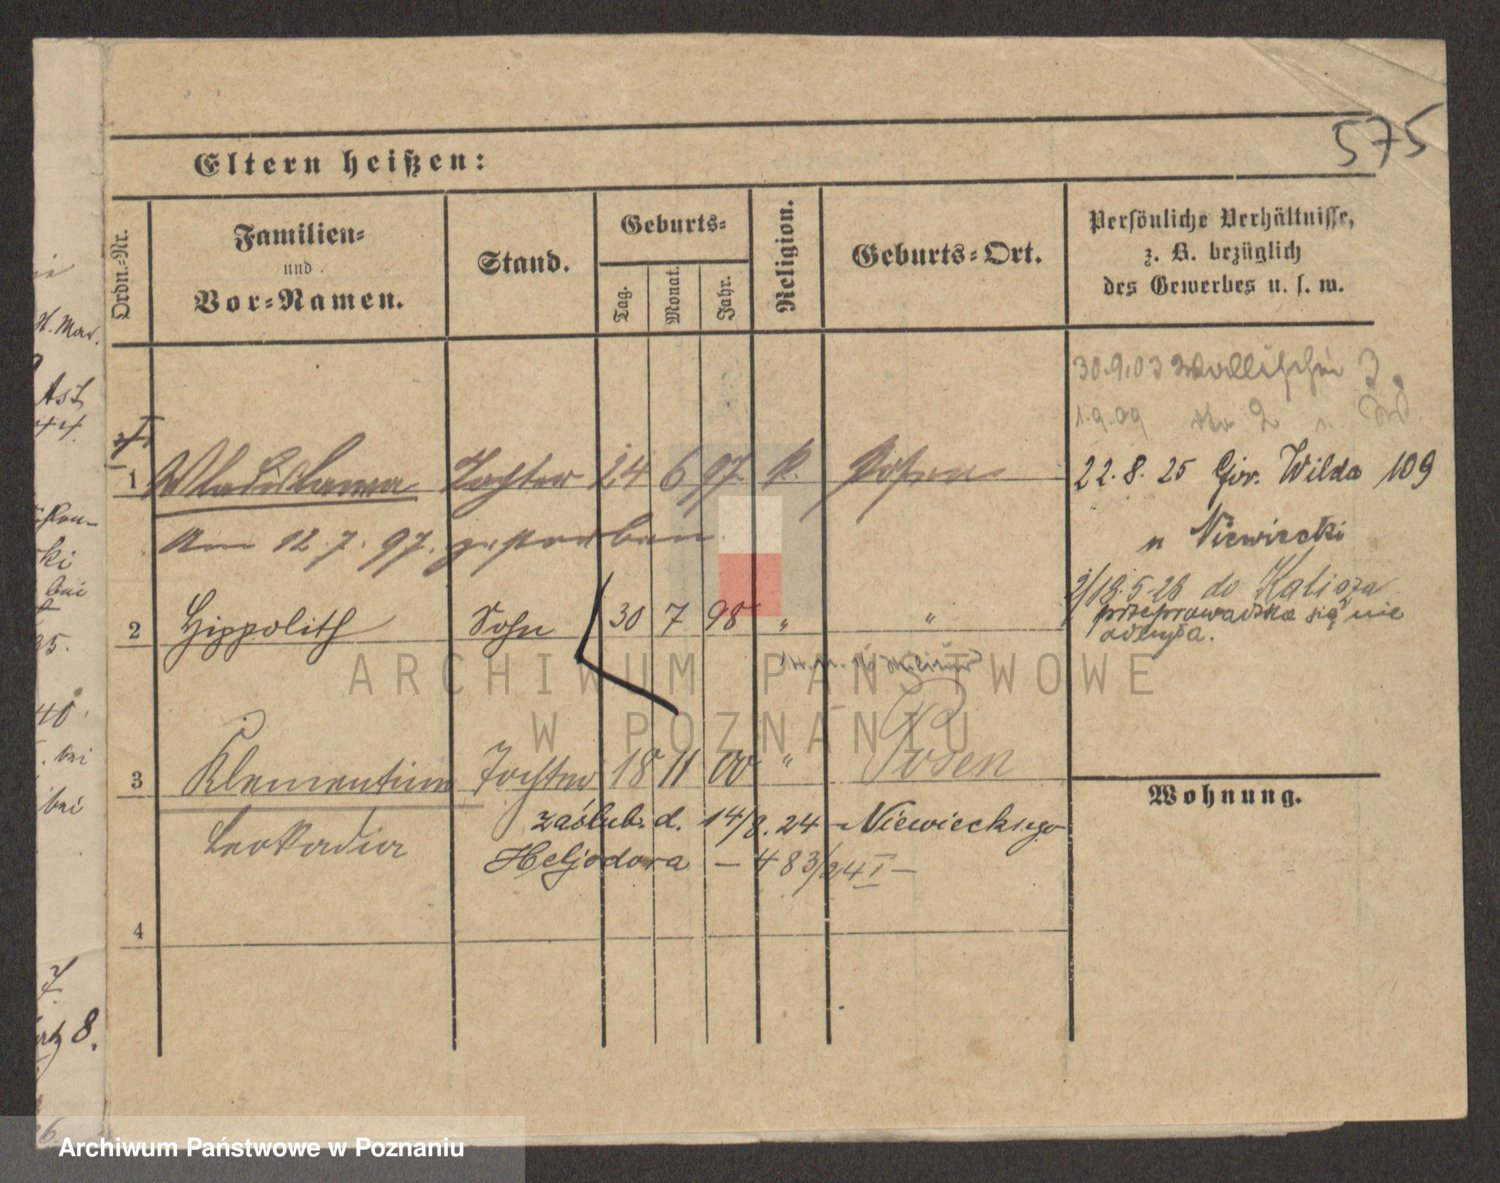 575
Eltern heißen:
Ordn.-Nr.
Familien-
und
Vor-Namen.
Stand.
Geburts-
Tag.
Monat.
Jahr.
Religion.
Geburts-Ort.
Persönliche Verhältnisse,
z. B. bezüglich
des Gewerbes u. s. w.
30.9.03 Wallischei 3.
1.9.09 2
1 Wladislawa Tochter 24 6 97 k. Posen
22.8.25 Gór. Wilda 109
am 12.7.97. gestorben
u Niewiecki
2/18.5.26 do Kalisza
2 Hippolith Sohn 30 7 98 " "
przeprowadzka się nie
odbyła.
3 Klementine Tochter 18 11 00 " Posen
Leokadia
zaślub. d. 14/8.24 Niewieckiego
Heljodora — 483/24 I —
4
Wohnung.
H. Mar.
bei
bei
8.
ARCHIWUM PAŃSTWOWE
W POZNANIU
Archiwum Państwowe w Poznaniu